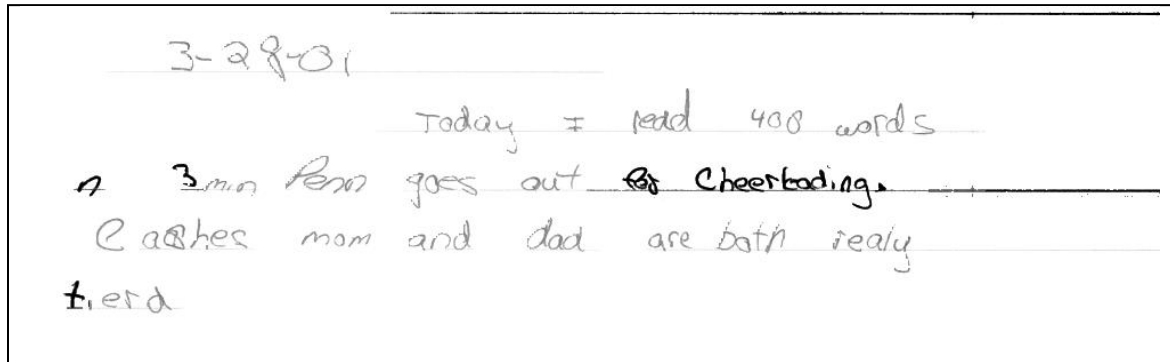 3-28-01
Today I read 408 words
n 3 min goes out for Cheerleading.
mom and dad are both realy
tierd